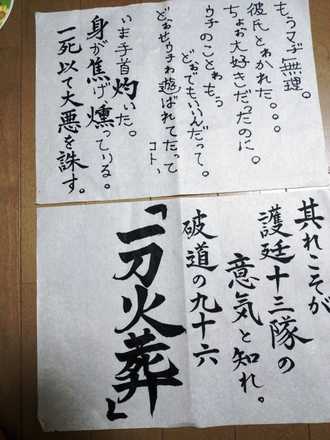 もうマヂ無理。
彼氏とゎかれた。。。
ちょお大好きだったのに。
ウチのことゎもぅ
どぉでもいいんだって。
どぉせウチゎ遊ばれてたって
コト、
いま手首灼いた。
身が焦げ燻っている。
一死以て大悪を誅す。
其れこそが
護廷十三隊の
意気と知れ。
破道の九十六
「一刀火葬」